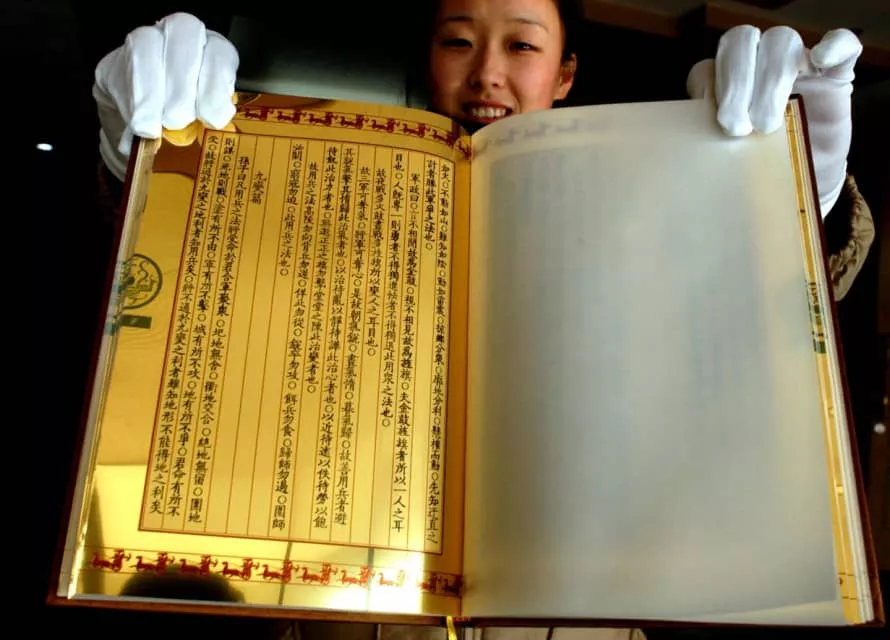 如火○不動如山○難知如陰○動如雷震○掠鄉分衆○廓地分利○懸權而動○先知迂直之
計者勝此軍爭之法也○
軍政曰○言不相聞故為金鼓○視不相見故為旌旗○夫金鼓旌旗者所以一人之耳
目也○人既專一則勇者不得獨進怯者不得獨退此用衆之法也○
故夜戰多火鼓晝戰多旌旗所以變人之耳目也○
故三軍可奪氣○將軍可奪心○是故朝氣銳○晝氣惰○暮氣歸○故善用兵者避
其銳氣擊其惰歸此治氣者也○以治待亂以靜待譁此治心者也○以近待遠以佚待勞以飽
待飢此治力者也○無邀正正之旗勿擊堂堂之陳此治變者也○
故用兵之法高陵勿向背丘勿逆○佯北勿從○銳卒勿攻○餌兵勿食○歸師勿遏○圍師
必闕○窮寇勿迫○此用兵之法也○
九變篇
孫子曰凡用兵之法將受命於君合軍聚衆○圮地無舍○衢地交合○絕地無留○圍地
則謀○死地則戰○塗有所不由○軍有所不擊○城有所不攻○地有所不爭○君命有所不
受○故將通於九變之地利者知用兵矣○將不通於九變之利者雖知地形不能得地之利矣